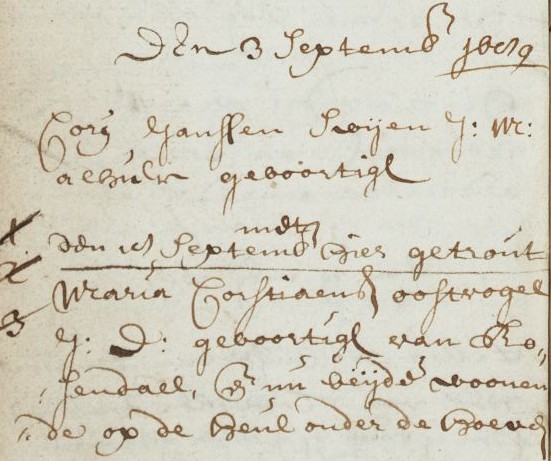 Den 3 Septemb^r
Corn Janssen Swijen J: M:
alhier geboortigh
X
den 15 Septemb hier getrout
2
Maria Corstiaens oostvogel
3
J: D: geboortigh van Ro„
„sendall, en nu beijde woonen
„de op de heul onder de